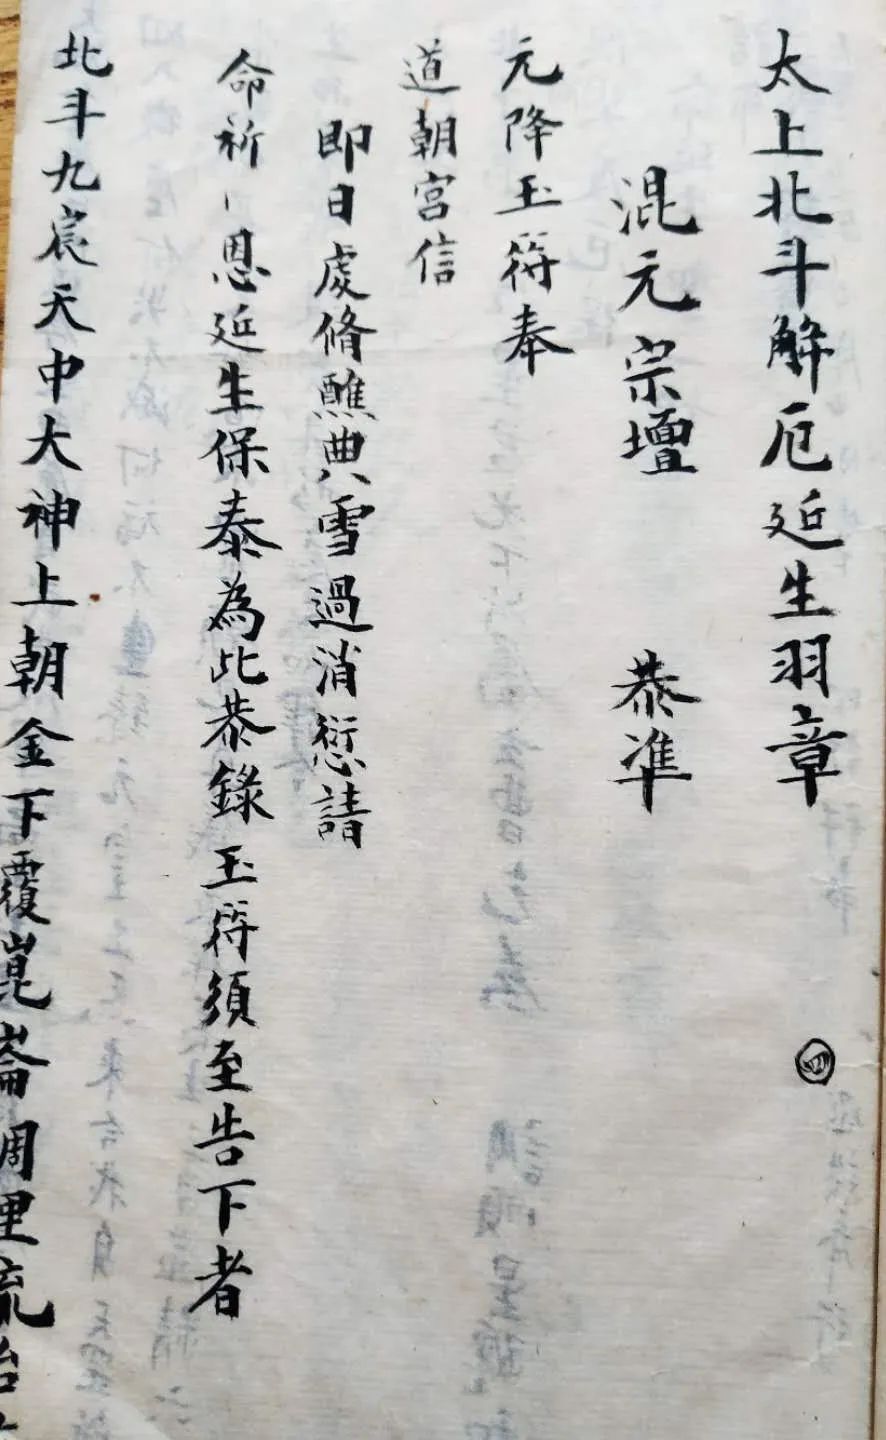 太上北斗解厄延生羽章
混元宗壇 恭準
元降玉符奉
道朝宮信
即日處脩醮典雪過消愆請
命祈恩延生保泰為此恭錄玉符須至告下者
北斗九宸天中大神上朝金下覆崑崙調理流